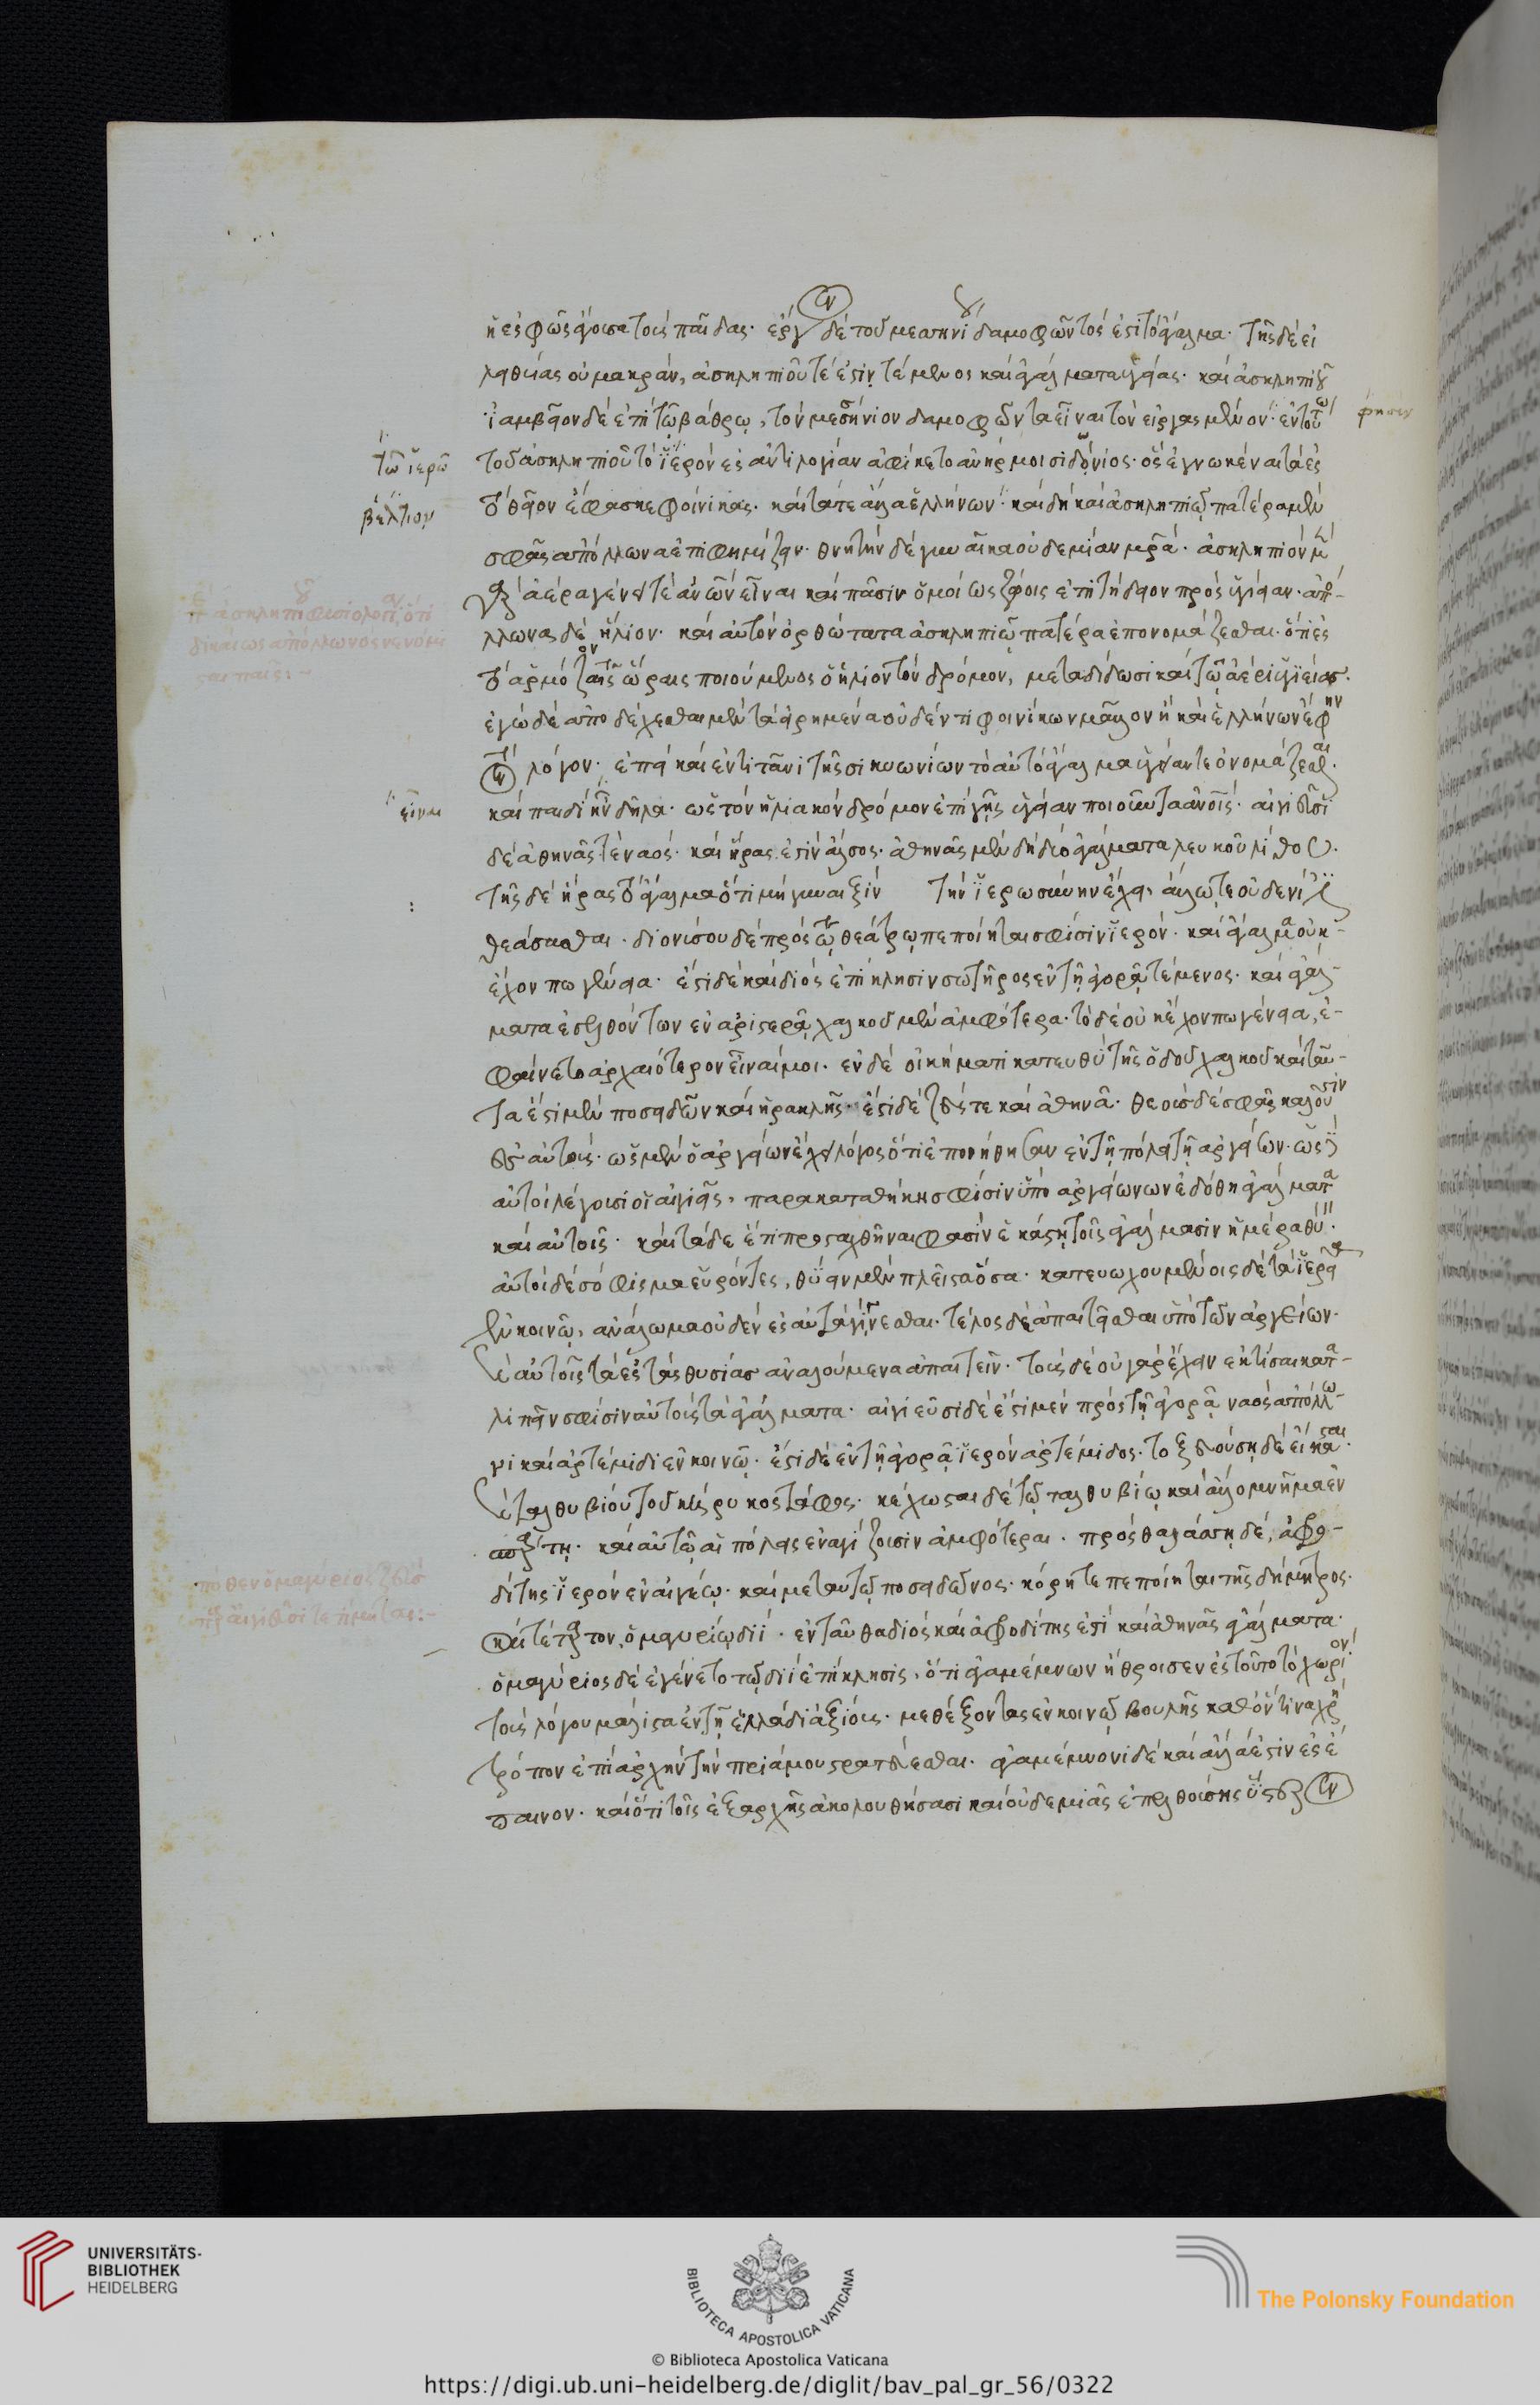 ἢ ἐς φῶς ἄγουσα τοὺς παῖδας· ἔργον δὲ τοῦ μεσηνίου δαμοφῶντός ἐστι τὸ ἄγαλμα· τῆς δὲ εἰ
ληθυίας οὐ μακρὰν, ἀσκληπιοῦ τέ ἐστιν τέμενος καὶ ἀγάλματα ὑγείας· καὶ ἀσκληπιοῦ
ἰαμβεῖον δὲ ἐπὶ τῷ βάθρῳ, τὸν μεσσήνιον δαμοφῶντα εἶναι τὸν εἰργασμένον· ἐν τούτω
φησίν
τοῦ ἀσκληπιοῦ τὸ ἱερὸν ἐς ἀντιλογίαν ἀφίκετο ἀνήρ μοι σιδώνιος· ὃς ἐγνωκέναι τὰ ἐς
τῶ ἱερῶ
τὸ θεῖον ἔφασκε φοίνικας· καὶ τά τε ἄλλα ἑλλήνων· καὶ δὴ καὶ ἀσκληπιῷ πατέρα μὲν
βέλτιον
σφᾶς ἀπόλλωνα ἐπιφημίζειν· θνητὴν δὲ γυναῖκα οὐδεμίαν μητέρα· ἀσκληπιὸν μὲν
γὰρ ἀέρα γένει τὲ ἀνθρώπων εἶναι καὶ πᾶσιν ὁμοίως ζώοις ἐπιτήδειον πρὸς ὑγίειαν· ἀπό-
λλωνα δὲ ἥλιον· καὶ αὐτὸν ὀρθώτατα ἀσκληπιῷ πατέρα ἐπονομάζεσθαι· ὅτι ἐς
τὸ ἁρμόζον ταῖς ὥραις ποιούμενος ὁ ἥλιος τὸν δρόμον, μεταδίδωσι καὶ τῷ ἀέρι ὑγιείας·
ἐγὼ δὲ ἀποδέχεσθαι μὲν τὰ εἰρημένα οὐδέν τι φοινίκων μᾶλλον ἢ καὶ ἑλλήνων ἔφην
τὸν λόγον· ἐπεὶ καὶ ἐν τιτάνι τῆς σικυωνίων τὸ αὐτὸ ἄγαλμα ὑγείαν τε ὀνομάζεσθαι·
καὶ παιδὶ ἦν δῆλα· ὡς τὸν ἡλιακὸν δρόμον ἐπὶ γῆς ὑγείαν ποιοῦντα ἀνθρώποις· αἰγιεῦσι
εἶναι
δὲ ἀθηνᾶς τὲ ναός· καὶ ἥρας ἐστὶν ἄλσος· ἀθηνᾶς μὲν δὴ δύο ἀγάλματα λευκοῦ λίθου·
τῆς δὲ ἥρας τὸ ἄγαλμα ὅτι μὴ γυναιξὶν τὴν ἱερωσύνην ἔχει, ἄλλω τε οὐδενὶ
θεάσασθαι· διονύσου δὲ πρὸς τῷ θεάτρῳ πεποίηται σφίσιν ἱερόν· καὶ ἄγαλμα οὐκ-
ἔχον πω γένεια· ἔστι δὲ καὶ διὸς ἐπίκλησιν σωτῆρος ἐν τῇ ἀγορᾷ τέμενος· καὶ ἀγάλ-
ματα ἐσελθόντων ἐν ἀριστερᾷ, χαλκοῦ μὲν ἀμφότερα· τὸ δὲ οὐκ ἔχον πω γένεια, ἐ-
φαίνετο ἀρχαιότερον εἶναί μοι· ἐν δὲ οἰκήματι κατευθὺ τῆς ὁδοῦ χαλκοῦ καὶ ταῦ-
τα ἔστι μὲν ποσειδῶν καὶ ἡρακλῆς· ἔστι δὲ ζεύς τε καὶ ἀθηνᾶ· θεοὺς δὲ σφᾶς καλοῦσιν
αὐτοὺς· ὡς μὲν ὁ ἀργείων ἔχει λόγος ὅτι ἐποιήθησαν ἐν τῇ πόλει τῇ ἀργείων· ὡς δὲ
αὐτοὶ λέγουσι οἱ αἰγιεῖς, παρακαταθήκη σφίσιν ὑπὸ ἀργείων ἐδόθη ἀγάλματα
καὶ αὐτοῖς· καὶ τάδε ἔτι προσταχθῆναι φασὶν ἑκάστῃ τοῖς ἀγάλμασιν ἡμέρα θύειν·
αὐτοὶ δὲ σόφισμα εὑρόντες, θύειν μὲν πλεῖστα ὅσα· κατευωχουμένοις δὲ τὰ ἱερεῖα
ἐν κοινῷ, ἀνάλωμα οὐδὲν ἐς αὐτὰ γίνεσθαι· τέλος δὲ ἀπαιτεῖσθαι ὑπὸ τῶν ἀργείων·
καὶ αὐτοῖς τὰ ἐς τὰς θυσίας ἀναλούμενα ἀπαιτεῖν· τοὺς δὲ οὐ γὰρ ἔχειν ἐκτίσαι κατα-
λιπεῖν σφίσιν αὐτοῖς τὰ ἀγάλματα· αἰγιεῦσι δὲ ἔστι μὲν πρὸς τῇ ἀγορᾷ ναὸς ἀπόλλω-
νι καὶ ἀρτέμιδι ἐν κοινῷ· ἔστι δὲ ἐν τῇ ἀγορᾷ ἱερὸν ἀρτέμιδος· τοξευούσῃ δὲ εἴκασται·
καὶ ταλθυβίου τοῦ κήρυκος τάφος· κέχωσται δὲ τῷ ταλθυβίῳ καὶ ἄλλο μνῆμα ἐν
σπάρτῃ· καὶ αὐτῷ αἱ πόλεις ἐναγίζουσιν ἀμφότεραι· πρὸς θαλάσσῃ δὲ, ἀφρο-
δίτης ἱερὸν ἐν αἰγίῳ· καὶ μετ αὐτῷ ποσειδῶνος· κόρη τε πεποίηται τῆς δήμητρος·
καὶ τέταρτον, ὁμαγυρίῳ διί· ἐνταῦθα διὸς καὶ ἀφροδίτης ἐστὶ καὶ ἀθηνᾶς ἀγάλματα·
ὁμαγύριος δὲ ἐγένετο τῷ διὶ ἐπίκλησις, ὅτι ἀγαμέμνων ἤθροισεν ἐς τοῦτο τὸ χωρίον
τοὺς λόγου μάλιστα ἐν τῇ ἑλλάδι ἀξίους· μεθέξοντας ἐν κοινῷ βουλῆς καθ ὅντινα χρὴ
τρόπον ἐπὶ ἀρχὴν τὴν πριάμου στρατεύεσθαι· ἀγαμέμνονι δὲ καὶ ἄλλα ἐστὶν ἐς ἔ
παινον· καὶ ὅτι τοῖς ἐξαρχῆς ἀκολουθήσασι καὶ οὐδεμιᾶς ἐπελθούσης ὕστερον
UNIVERSITÄTS-
BIBLIOTHEK
HEIDELBERG
BIBLIOTECA APOSTOLICA VATICANA
The Polonsky Foundation
© Biblioteca Apostolica Vaticana
https://digi.ub.uni-heidelberg.de/diglit/bav_pal_gr_56/0322